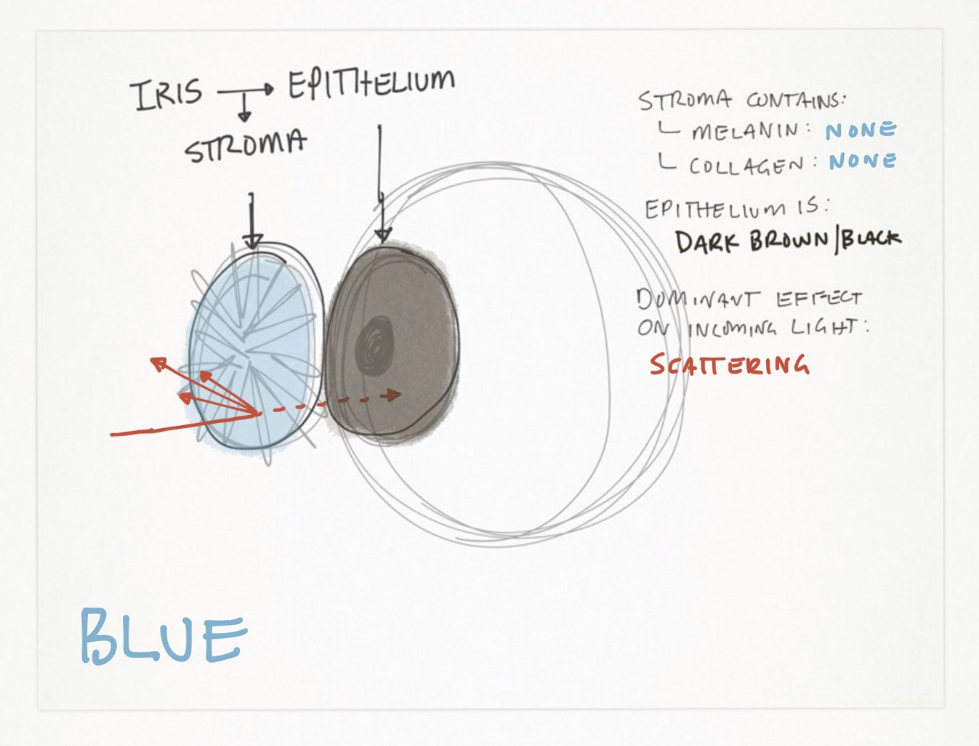 IRIS → EPITHELIUM
STROMA
STROMA CONTAINS:
└ MELANIN: NONE
└ COLLAGEN: NONE
EPITHELIUM IS:
DARK BROWN/BLACK
DOMINANT EFFECT
ON INCOMING LIGHT:
SCATTERING
BLUE